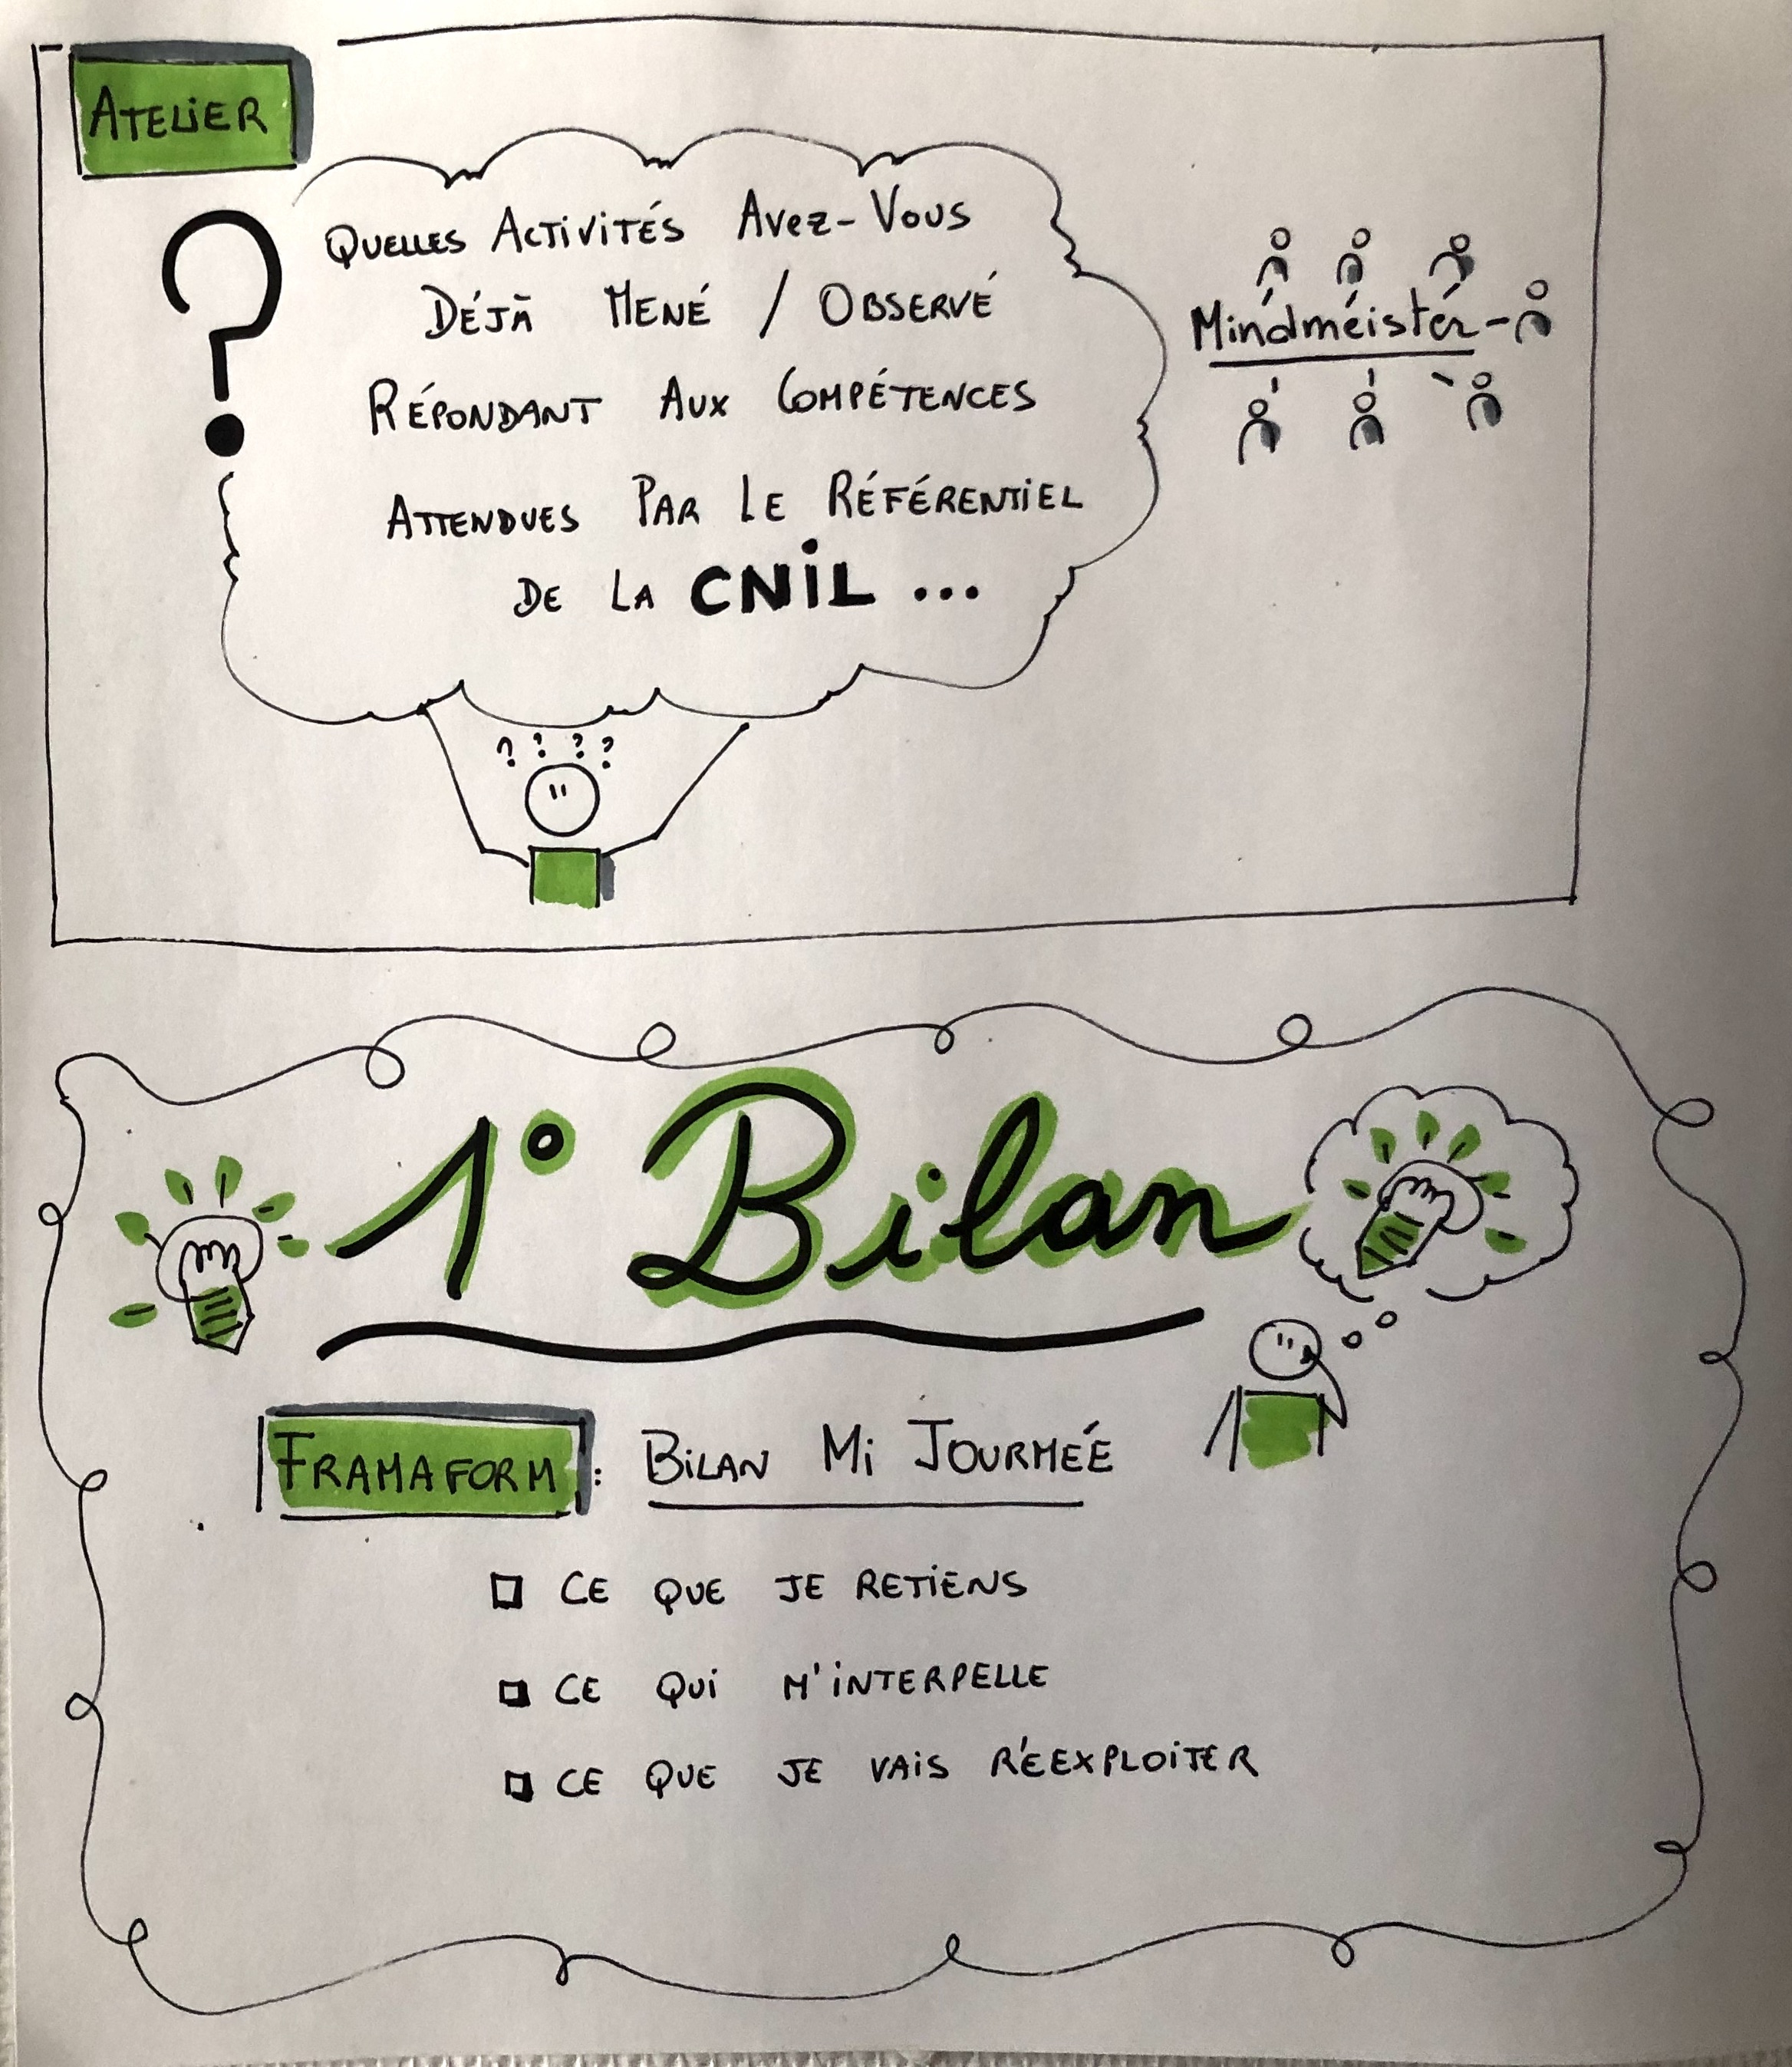 ATELIER
?
QUELLES ACTIVITÉS AVEZ-VOUS
DÉJÀ MENÉ / OBSERVÉ
RÉPONDANT AUX COMPÉTENCES
ATTENDUES PAR LE RÉFÉRENTIEL
DE LA CNIL ...
Mindmeister
? ? ? ?
1° Bilan
FRAMAFORM : BILAN MI JOURNÉE
CE QUE JE RETIENS
CE QUI M'INTERPELLE
CE QUE JE VAIS RÉEXPLOITER